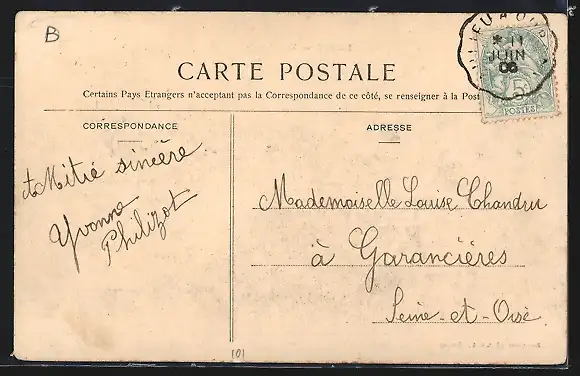 B
CARTE POSTALE
Certains Pays Etrangers n'acceptant pas la Correspondance de ce côté, se renseigner à la Post
CORRESPONDANCE
ADRESSE
* 11
JUIN
06
5
POSTES
Amitié sincère
Yvonne
Philizot
Mademoiselle Louise Chandru
à Garancières
Seine-et-Oise
101